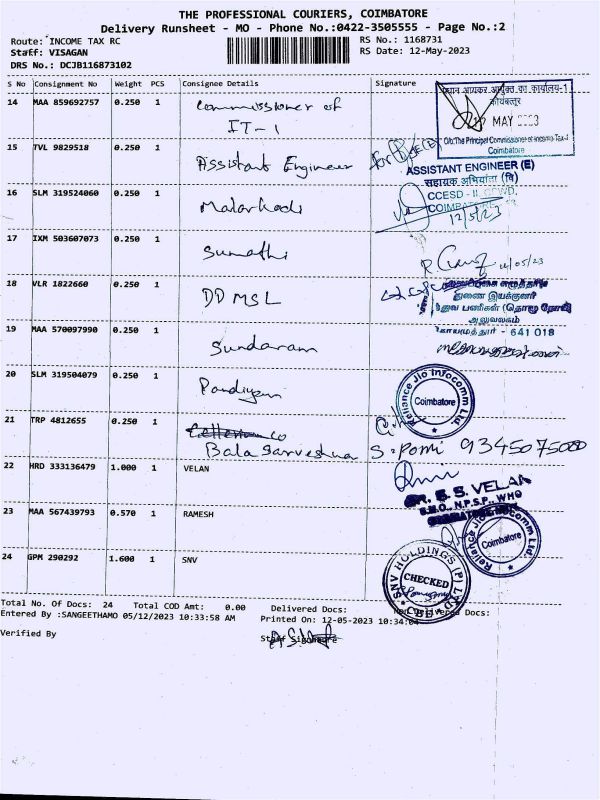 THE PROFESSIONAL COURIERS, COIMBATORE
Delivery Runsheet - MO - Phone No.:0422-3505555 - Page No.:2
Route: INCOME TAX RC
RS No.: 1168731
Staff: VISAGAN
RS Date: 12-May-2023
DRS No.: DCJB116873102
S No Consignment No Weight PCS Consignee Details Signature
14 MAA 859692757 0.250 1 Commissioner of
IT-1
प्रधान आयकर आयुक्त का कार्यालय-1
कोयंबत्तूर
MAY
O/o.The Principal Commissioner of Income-Tax-I
Coimbatore
15 TVL 9829518 0.250 1 Assistant Engineer
ASSISTANT ENGINEER (E)
सहायक अभियंता (वि)
CCESD - II, CPWD,
16 SLM 319524060 0.250 1 Malarkodi
12/5/23
17 IXM 503607073 0.250 1 Sumathi
18 VLR 1822660 0.250 1 DD MSL
துணை இயக்குனர்
அலுவலகம்
- 641 018
19 MAA 570097990 0.250 1 Sundaram
20 SLM 319504079 0.250 1 Pandiyan
Reliance Jio Infocomm Ltd.
Coimbatore
21 TRP 4812655 0.250 1
Bala Sarveshwa S. Ponni
22 HRD 333136479 1.000 1 VELAN
S. VELAN
N.P.S.P., WHO
23 MAA 567439793 0.570 1 RAMESH
Reliance Jio Infocomm Ltd
Coimbatore
24 GPM 290292 1.600 1 SNV
SNV HOLDINGS (P) LTD
CHECKED
Total No. Of Docs: 24 Total COD Amt: 0.00 Delivered Docs:
Docs:
Entered By :SANGEETHAMO 05/12/2023 10:33:58 AM Printed On: 12-05-2023 10:34:04
Verified By
Staff Signature